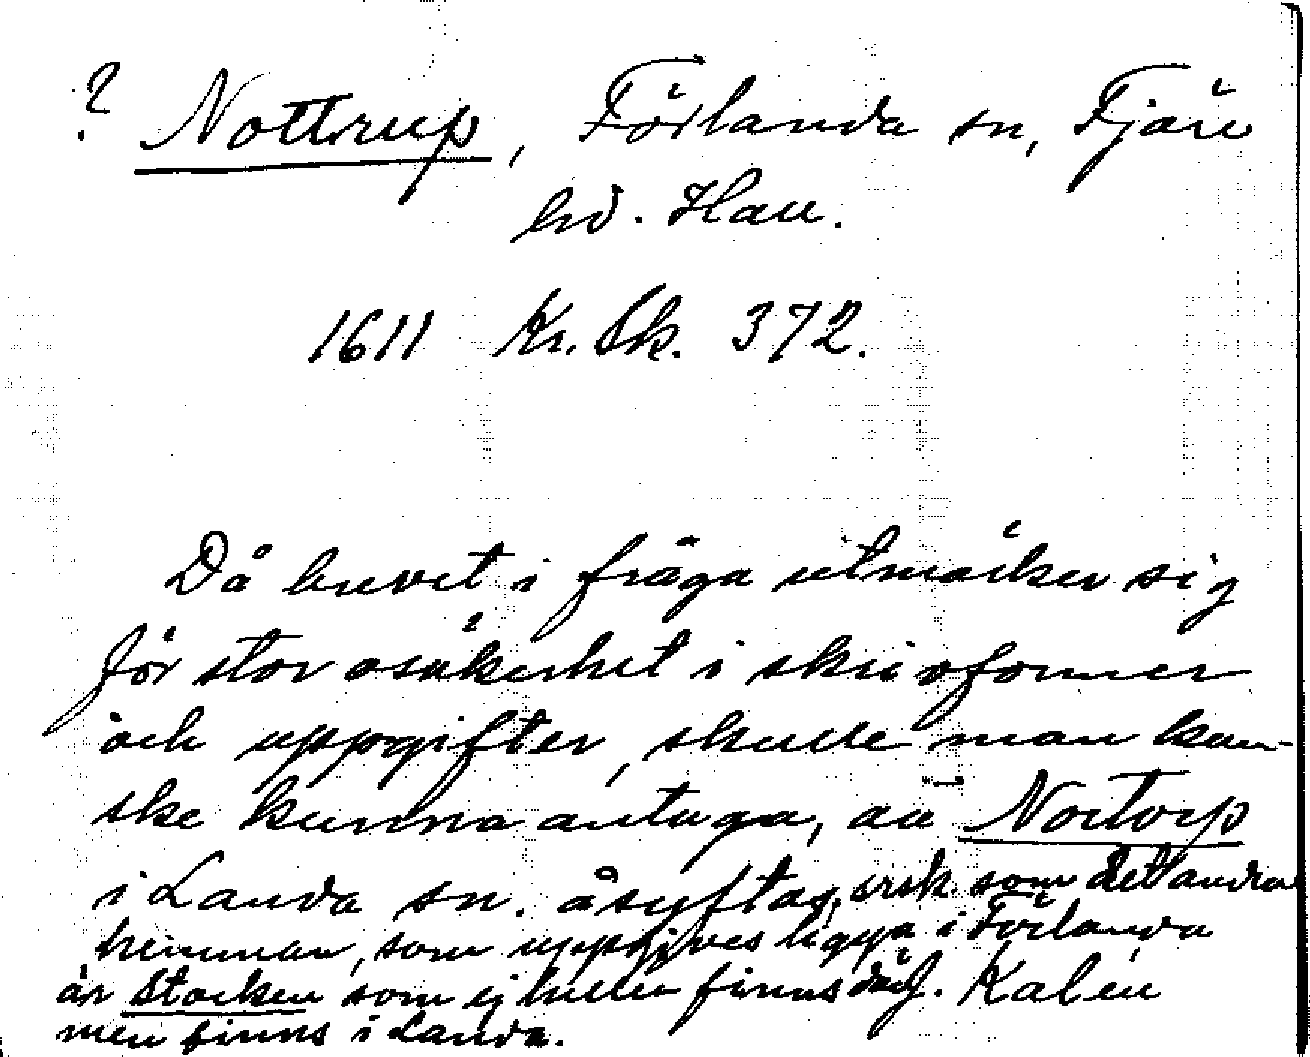 ? Nottrup, Förlanda sn, Fjäre
hd. Hall.
1611 Kr. Sk. 372.
Då brevet i fråga utmärker sig
för stor osäkerhet i skrivformer
och uppgifter, skulle man kan-
ske kunna antaga, att Nortorp
i Landa sn. åsyftas, som det andra
hemman, som uppgives ligga i Förlanda
är Stocken som ej heller finns där J. Kalén
men finns i Landa.